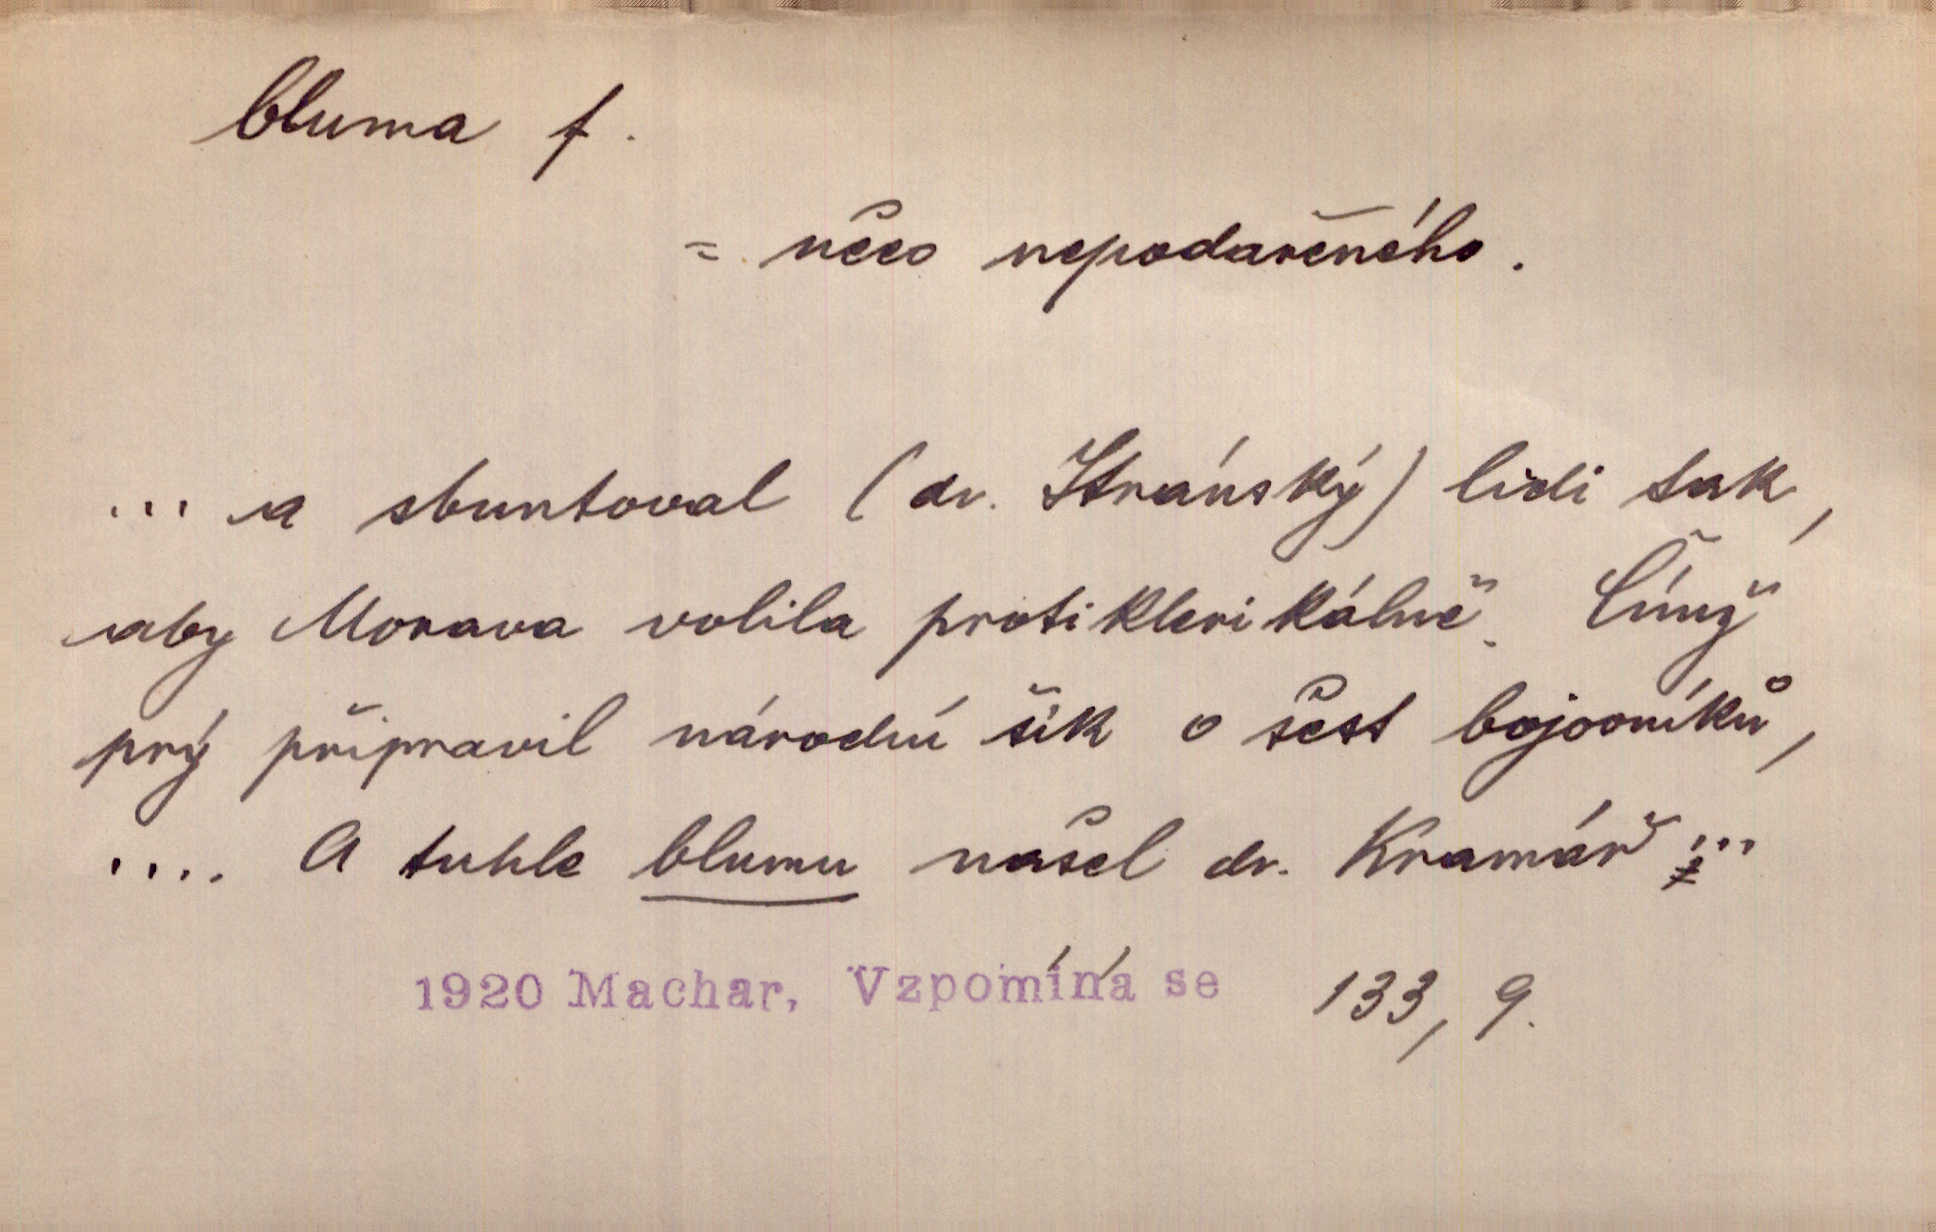 bluma f.
= něco nepodařeného.
... a sbuntoval (dr. Stránský) lidi tak,
aby Morava volila protiklerikálně. Čímž
prý připravil národní šik o šest bojovníků,
.... A tuhle blumu našel dr. Kramář ...
1920 Machar, Vzpomíná se 133, 9.